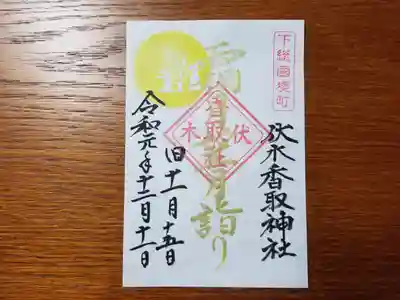 下総國境町
伏木香取神社
月詣り
伏木
香取社
旧十一月十五日
令和元年十二月十一日